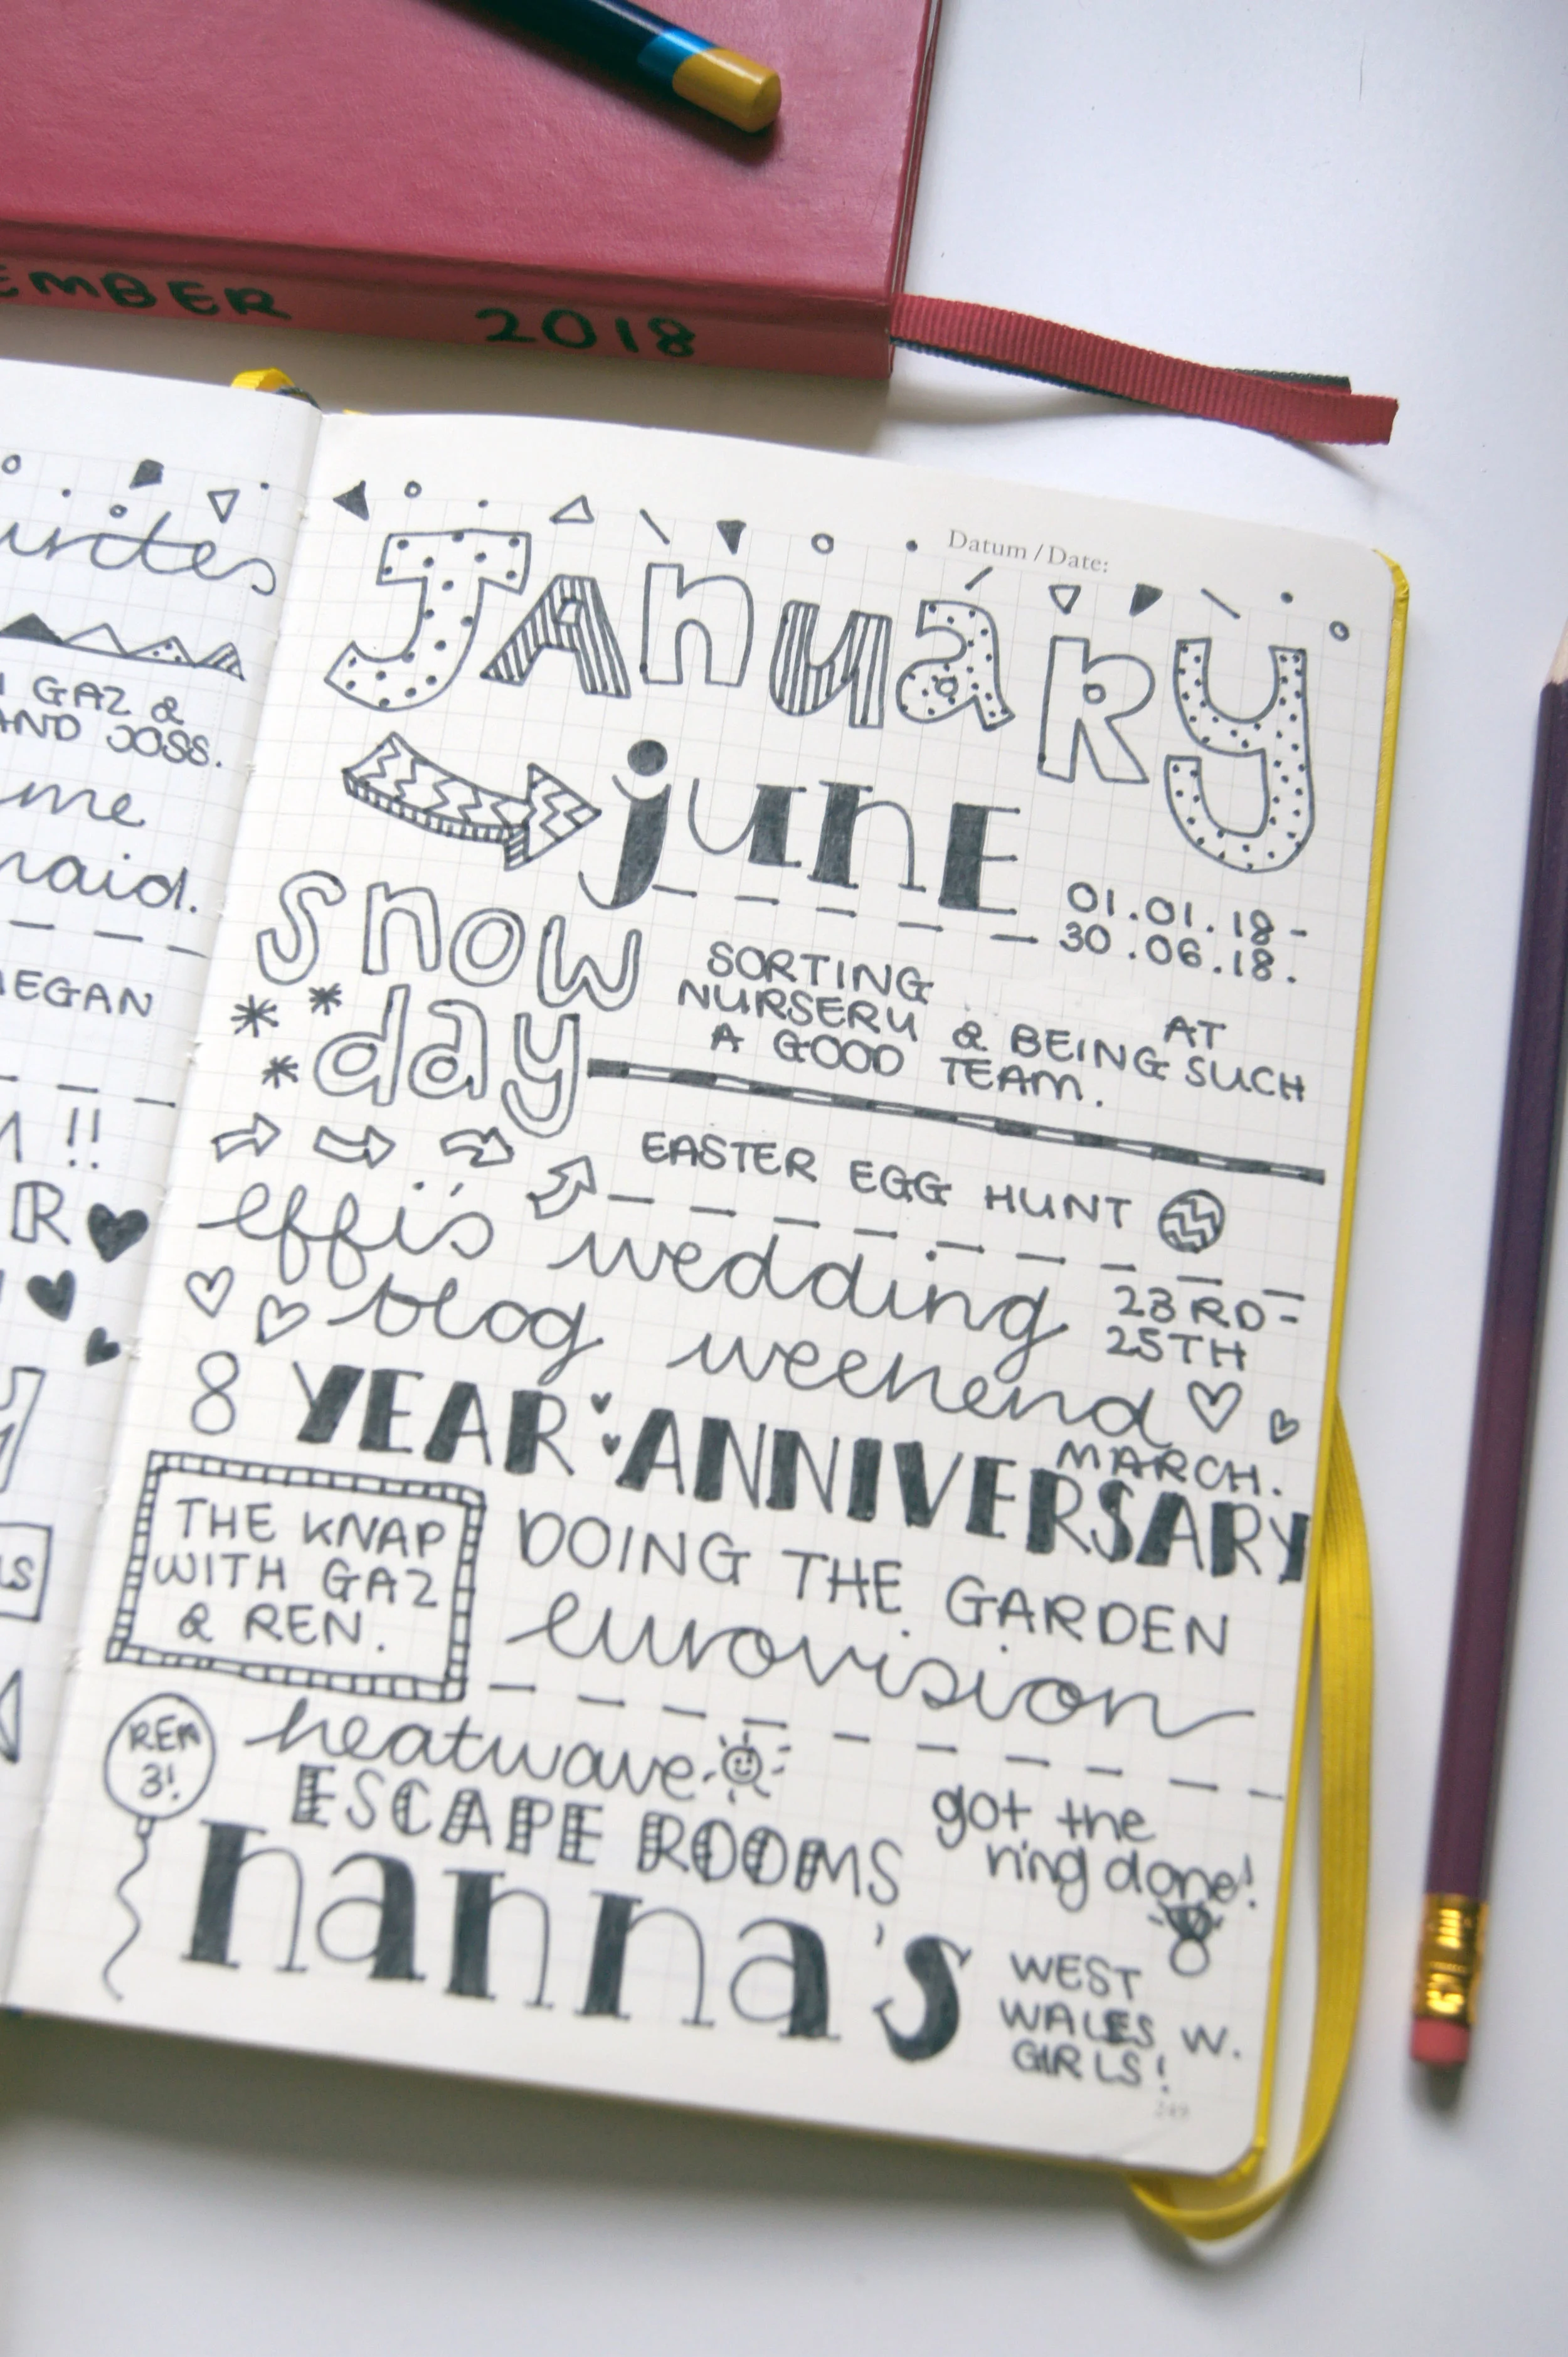 EMBER 2018
urites
GAZ &
AND JOSS.
me
maid.
MEGAN
!!
R
Datum / Date:
JANUARY
june
01.01.18 -
30.06.18.
snow
day
SORTING
NURSERY & BEING AT SUCH
A GOOD TEAM.
EASTER EGG HUNT
effi's wedding
23RD-
25TH
MARCH.
blog weekend
8 YEAR ANNIVERSARY
THE KNAP
WITH GAZ
& REN.
DOING THE GARDEN
eurovision
REN
3!
heatwave
ESCAPE ROOMS
got the
ring done!
nanna's
WEST
WALES W.
GIRLS!
249